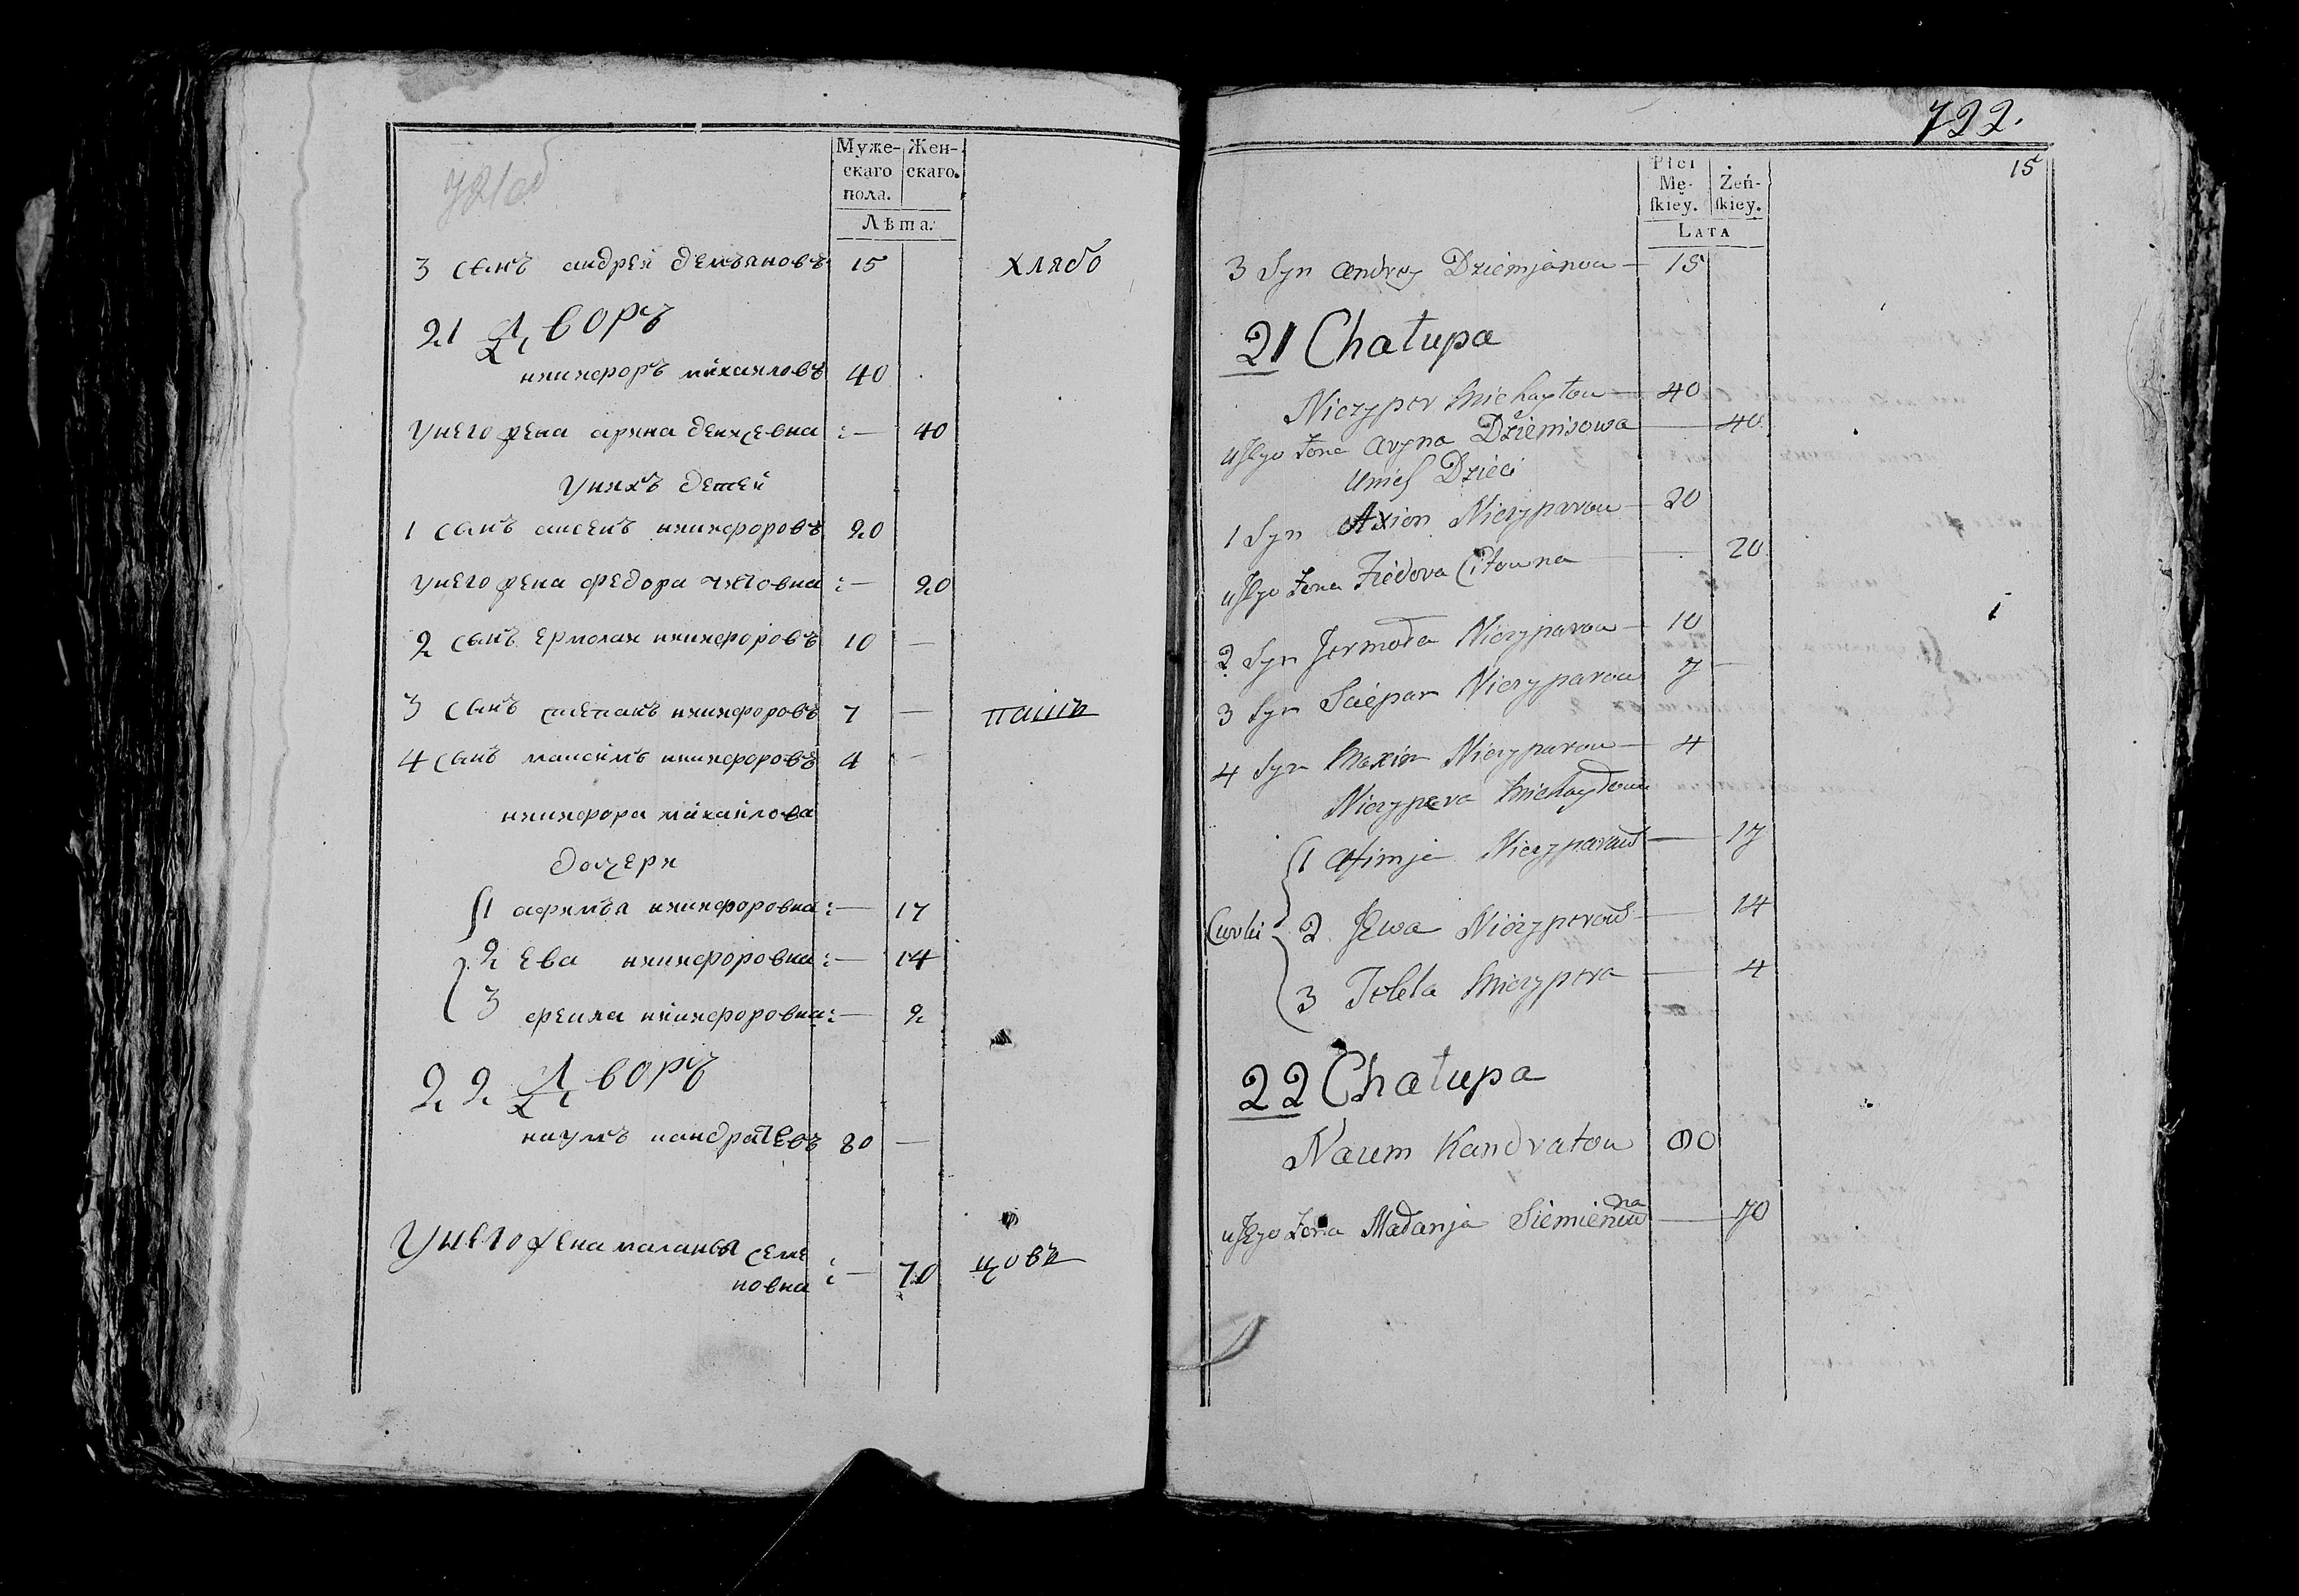 721об
Муже-скаго пола. Жен-скаго.
Лѣта:
3 сынъ андрей демьяновъ 15 хлябо
21 Дворъ
никифоръ михаиловъ 40
унего жена арина денисевна :— 40
унихъ детей
1 сынъ аксенъ никифоровъ 20
унего жена федора титовна :— 20
2 сынъ ермолаи никифоровъ 10 —
3 сынъ степанъ никифоровъ 7 — пашъ
4 сынъ максимъ никифоровъ 4 —
никифора михаилова
дочери
1 афимъя никифоровна :— 17
2 Ева никифоровна :— 14
3 фекла никифоровна :— 2
22 Дворъ
наумъ кандратевъ 80 —
Унего жена маланья семе
новна :— 70 цовъ
722.
15
Płci Mę-ſkiey. Żeń-ſkiey.
LATA
3 Syn Andrey Dziemjanou — 15
21 Chałupa
Niczypor Michayłou — 40
uJego Żona Aryna Dziemisowa — 40
Unich Dzieci
1 Syn Axion Niczyparou — 20
uJego Żona Fiedora Citowna — 20
2 Syn Jermoła Niczyparou — 10
3 Syn Sciepan Niczyparou 7 —
4 Syn Maxim Niczyparou — 4
Niczypera Michayłowa
1 Afimja Niczyparow — 17
Curki 2 JEwa Niczyperow — 14
3 Tekla Niczypera — 4
22 Chałupa
Naum Kandratou 80
uJego Żona Małanja Siemienow na — 70